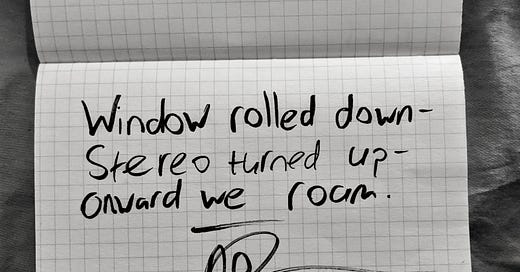 Window rolled down-
Stereo turned up-
onward we roam.